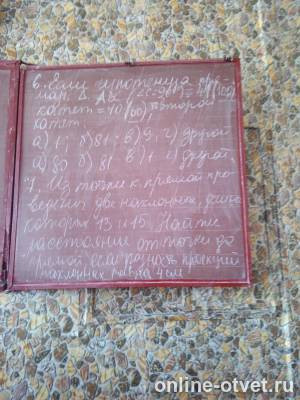 6. Если гипотенуза
катет = 40 второй
катет
а) 1; б) 81; в) 9; г) другой
а) 80 б) 81 в) 1 г) другой.
7. Из точки к прямой про
ведены две наклонные, длина
которых 13 и 15. Найти
расстояние от точки до
прямой, если разность проекций
наклонных равна 4 см
online-otvet.ru